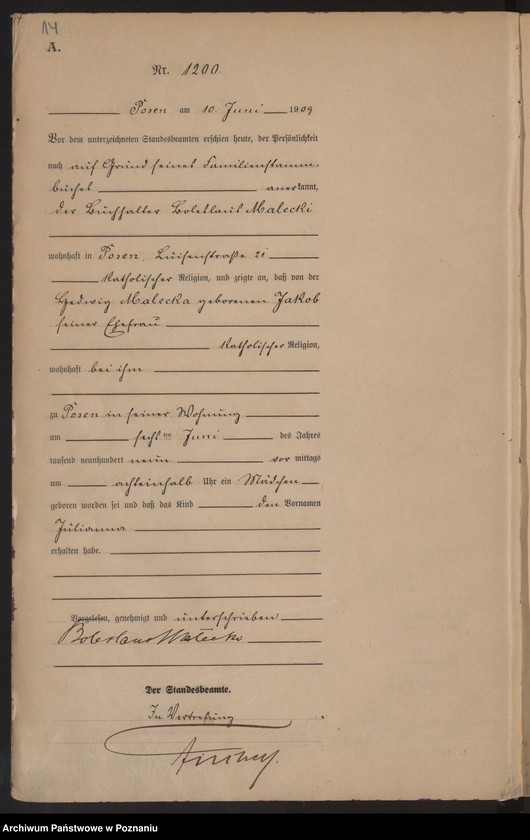 14
A.
Nr. 1200
Posen am 10. Juni 1909
Vor dem unterzeichneten Standesbeamten erschien heute, der Persönlichkeit
nach auf Grund seines Familienstamm-
buches anerkannt,
der Buchhalter Boleslaus Malecki
wohnhaft in Posen, Luisenstraße 21
katholischer Religion, und zeigte an, daß von der
Hedwig Malecka geborenen Jakob
seiner Ehefrau
katholischer Religion,
wohnhaft bei ihm
zu Posen in seiner Wohnung
am sechsten Juni des Jahres
tausend neunhundert neun vor mittags
um achteinhalb Uhr ein Mädchen
geboren worden sei und daß das Kind den Vornamen
Julianna
erhalten habe.
Vorgelesen, genehmigt und unterschrieben
Boleslaus Malecki
Der Standesbeamte.
In Vertretung
Archiwum Państwowe w Poznaniu